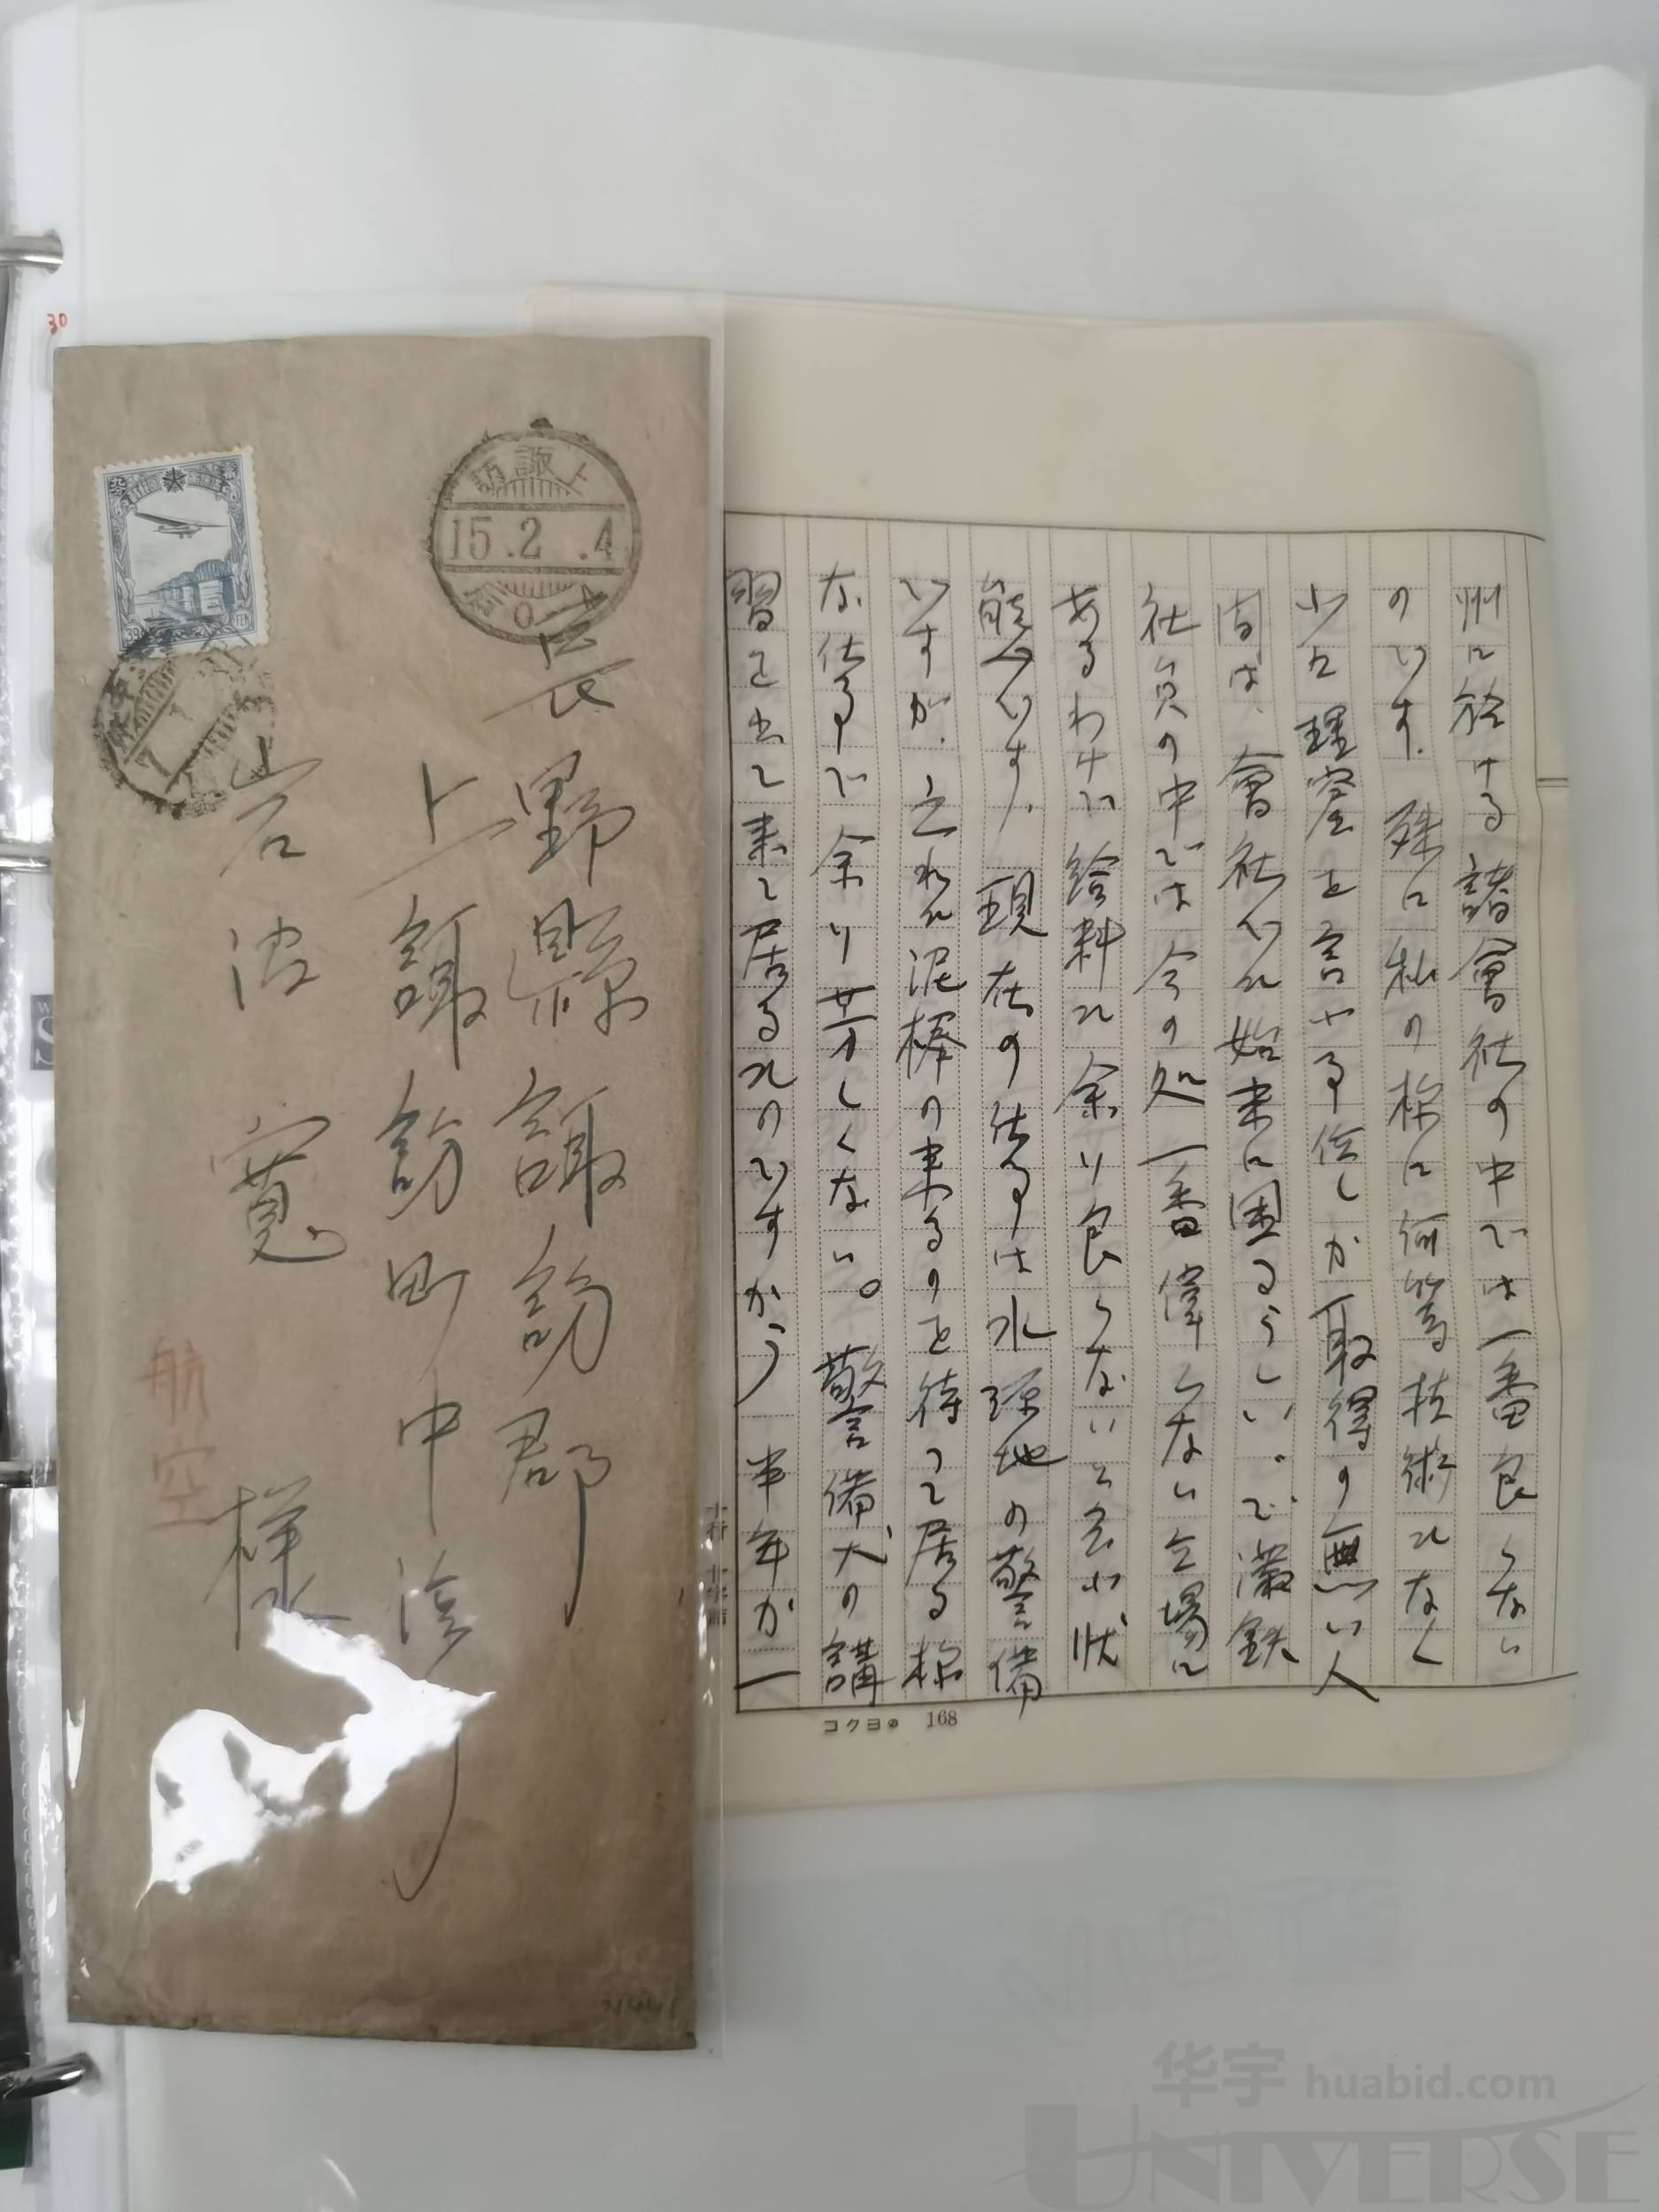 30
上諏訪
15.2.4
長野縣諏訪郡
上諏訪町中濱町
岩波寛様
航空
州に於ける諸會社の中では一番良くない
のです。殊に私の様に何等技術もなく
少々理窟を言やる位しか取得の無い人
間は、會社でも始末に困るらしい。で満鉄
社員の中では今の処一番偉くない立場に
あるわけで給料も余り良くないと云ふ状
態です。現在の仕事は水源地の警備
ですが、之れも泥棒の来るのを待つて居る様
な仕事で余り芳しくない。警備犬の講
習を出て来て居るものですから半年か一
コクヨの 168
华宇 huabid.com
UNIVERSE